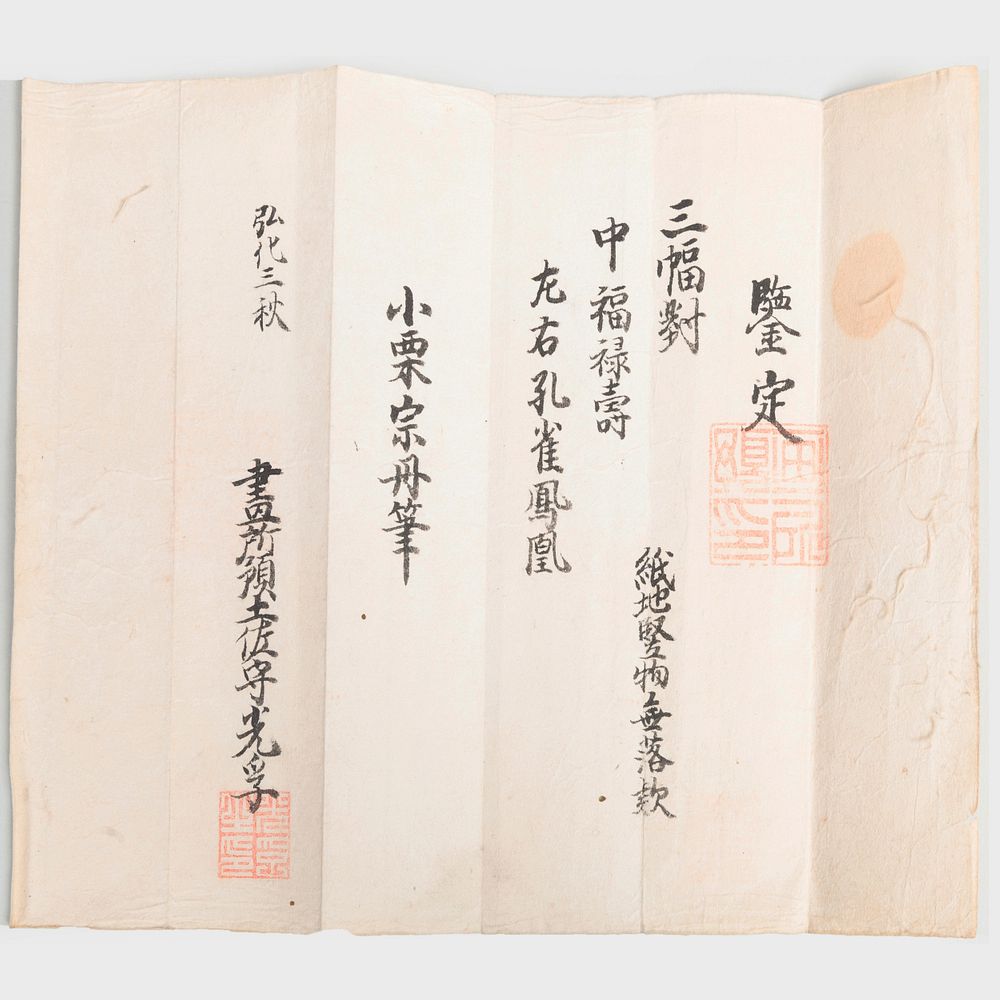 鑒定
三幅對
紙地竪物無落款
中 福禄壽
左右孔雀鳳凰
小栗宗丹筆
弘化三秋
畫所預土佐守光孚